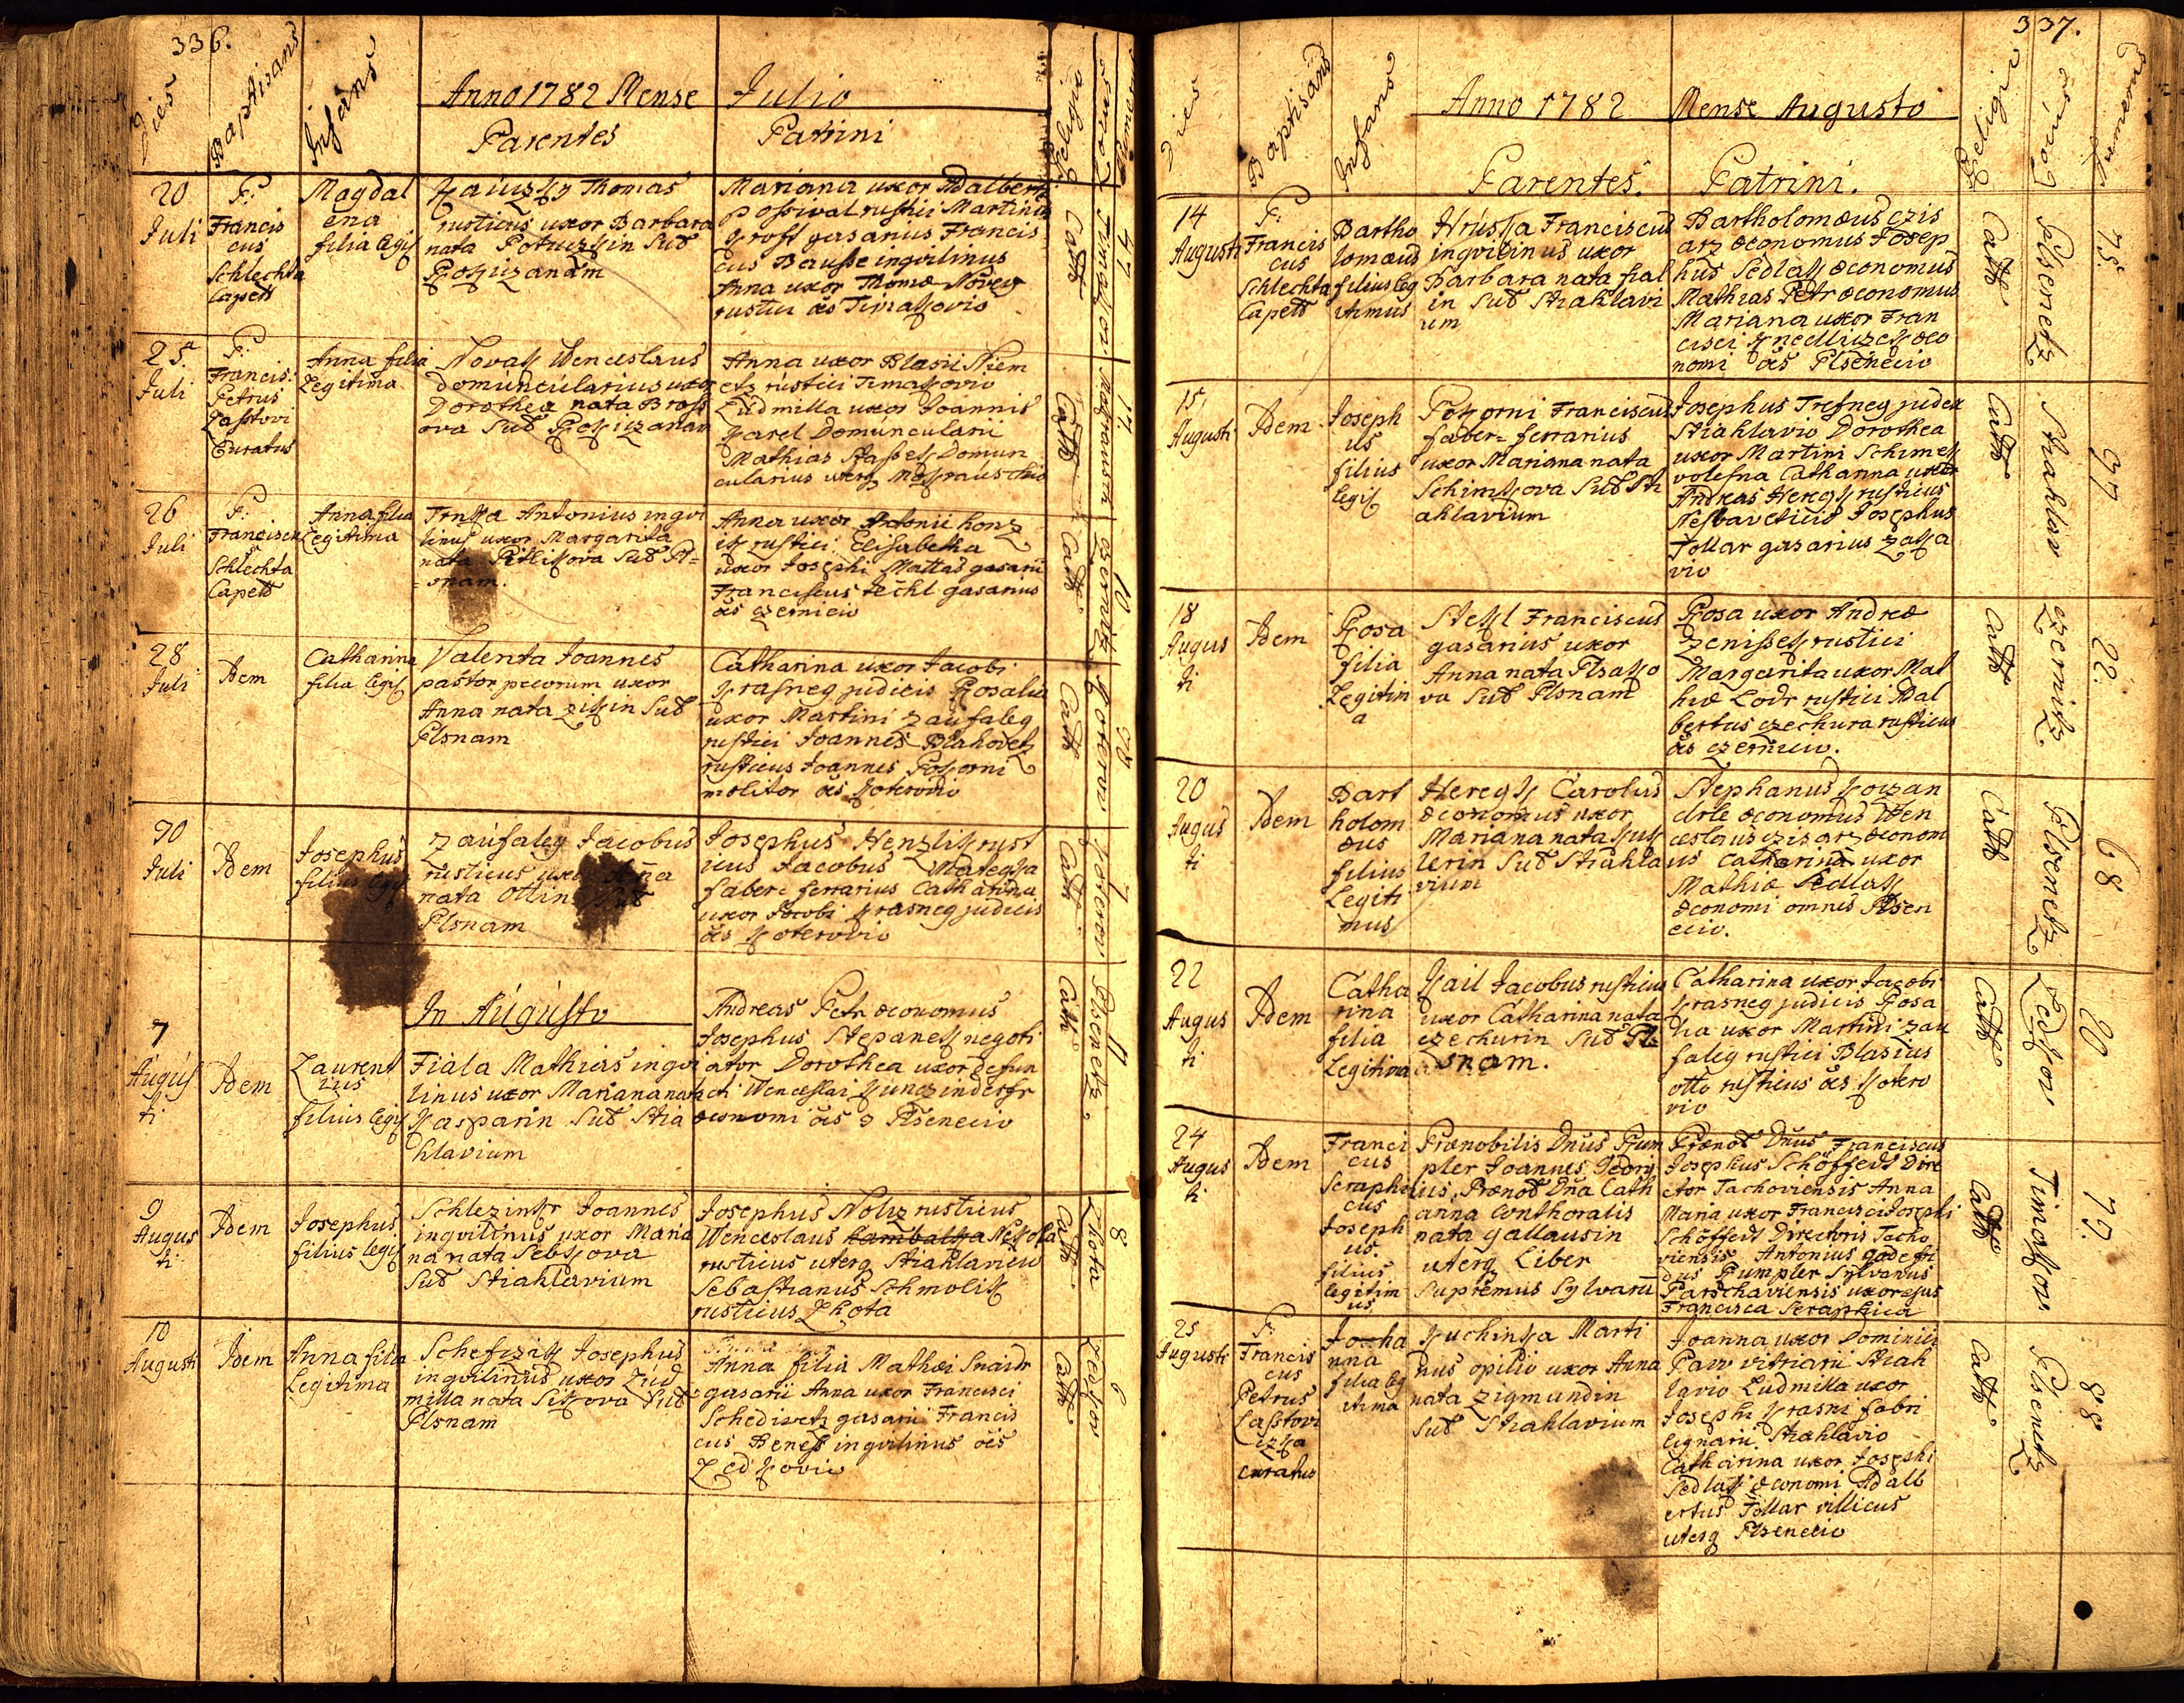 336.
Dies
Baptisans
Infans
Anno 1782 Mense Julio
Parentes
Patrini
Religio
Locus
Numerus
20
Juli
F:
Francis
cus
Schlechta
Capell
Magdal
ena
filia legit
Thomas
rusticus uxor Barbara
nata
Mariana uxor Adalberti
rustici Martinus
gasarius Francis
cus Bausse ingvilinus
Anna uxor Thomæ Novey
Cath
47
25.
Juli
F:
Francis:
Petrus
Lasstovi
Curatus
Anna filia
Legitima
Novak Wenceslaus
Domuncularius uxor
Dorothea nata Bross
ova Sub
Anna uxor Blasii Niem
etz rustici
Ludmilla uxor Joannis
Karel Domuncularii
Mathias Domun
cularius uterq
Cath
17.
26
Juli
F:
Franciscus
Schlechta
Capell
Anna filia
Legitima
Trnka Antonius ingvi
linus uxor Margarita
nata Sub Pl=
=snam.
Anna uxor Antonii honz
ik rustici Elisabetha
uxor Josephi Mattas gasarii
Franciscus Techl gasarius
oēs czernicio
Cath
Czernitz
10
28
Juli
Idem
Catharina
filia legit
Valenta Joannes
pastor pecorum uxor
Anna nata zikin Sub
Plsnam
Catharina uxor Jacobi
Krasney judicis Rosalia
uxor Martini Zaufaley
rustici Joannes Blahovetz
rusticus Joannes Pokorni
molitor oēs Koterovio
Cath
Koterow
30
Juli
Idem
Josephus
filius legit
Zaufaley Jacobus
rusticus uxor Anna
nata Ottin Sub
Plsnam
Josephus Henzlik rust
icus Jacobus
faber ferrarius Catharina
uxor Jacobi Krasney judicis
oēs Koterovio
Cath
Koterow
7
In Augusto
7
Augus
ti
Idem
Laurent
ius
filius legit
Fiala Mathias ingvi
linus uxor Mariana nata
Kasparin Sub Stia
hlavium
Andreas Petr œconomus
Josephus Stepanek negoti
ator Dorothea uxor defun
cti Wenceslai
œconomi oēs Plsenecio
Cath
Plsenetz
11
9
Augus
ti
Idem
Josephus
filius legit
Joannes
ingvilinus uxor Maria
na nata Sebkova
Sub Stiahlavium
Josephus Noliz rusticus
Wenceslaus
rusticus uterq Stiahlavicio
Sebastianus Schmolik
rusticus Lhota
Cath
Lhota
8
10
Augusti
Idem
Anna filia
Legitima
Josephus
ingvilinus uxor Lud
milla nata Sikova Sub
Plsnam
Anna filia Mathæi Snaidr
gasarii Anna uxor Francisci
Schediwetz gasarii Francis
cus Beness ingvilinus oēs
Ledkovio
Cath
Ledkow
6
337.
Dies
Baptisans
Infans
Anno 1782 Mense Augusto
Parentes.
Patrini.
Religio
Locus
Numerus
14
Augusti
F:
Francis
cus
Schlechta
Capell
Bartho
lomæus
filius leg
itimus
Hruska Franciscus
ingvilinus uxor
Barbara nata fial
in Sub Stiahlavi
um
Bartholomæus Czis
arz œconomus Josep
hus Sedlak œconomus
Mathias Petr œconomus
Mariana uxor Fran
cisci œco
nomi oēs Plsenecio
Cath
Plsenetz
75.
15
Augusti
Idem
Joseph
us
filius
legit
Pokorni Franciscus
faber=ferrarius
uxor Mariana nata
Schimkova Sub Sti
ahlavium
Josephus Tresney judex
Stiahlavio Dorothea
uxor Martini Schimek
volesna Catharina uxor
Andreas Hereyk rusticus
Nesbaveticio Josephus
Tollar gasarius Zaka
vio
Cath
Stiahlau
97
18
Augus
ti
Idem
Rosa
filia
Legitim
a
Stekl Franciscus
gasarius uxor
Anna nata Plsako
va Sub Plsnam
Rosa uxor Andreæ
Zenissek rustici
Margarita uxor Mat
hiæ Lodr rustici Adal
bertus czechura rusticus
oēs czernicio.
Cath
czernitz
22.
20
Augus
ti
Idem
Bart
holom
æus
filius
Legiti
mus
Hereyk Carolus
œconomus uxor
Mariana nata Kuk
lerin Sub Stiahla
vium
Stephanus Kozan
drle œconomus Wen
ceslaus Czisarz œconom
us Catharina uxor
Mathiæ Sedlak
œconomi omnes Plsen
ecio.
Cath
Plsenetz
68
22
Augus
ti
Idem
Catha
rina
filia
Legitima
Kail Jacobus rusticus
uxor Catharina nata
czechurin Sub Pl=
snam.
Catharina uxor Jacobi
Krasney judicis Rosa
lia uxor Martini Zau
faley rustici Blasius
otto rusticus oēs Kotero
vio
Cath
Ledkow
20
24
Augus
ti
Idem
Franci
cus
Seraphi
cus
Joseph
us.
filius
legitim
us
Prænobilis Dnus Rum
pler Joannes Georg
ius, Prænob Dna Cath
arina Conthoralis
nata gallausin
uterq Liber
Supremus Sylvarū
Prænob Dnus Franciscus
Josephus Schöfferl Dire
ctor Tachoviensis Anna
Maria uxor Francisci Josephi
Schöfferl Directoris Tacho
viensis Antonius Godefri
dus Rumpler Sylvanus
Parschaviensis uxor ejus
Francisca Seraphica
Cath
Timakow
77.
25
Augusti
F:
Francis
cus
Petrus
Lasstovi
czka
curatus
Joha
nna
filia leg
itima
Kuchinka Marti
nus opilio uxor Anna
nata Zigmundin
Sub Stiahlavium
Joanna uxor Dominici
Paw vitriarii Stiah
lavio Ludmilla uxor
Josephi Krasni fabri
lignarii Stiahlavio
Catharina uxor Josephi
Sedlak œconomi Adalb
ertus Tollar villicus
uterq Plsenecio
Cath
Plsenetz
88